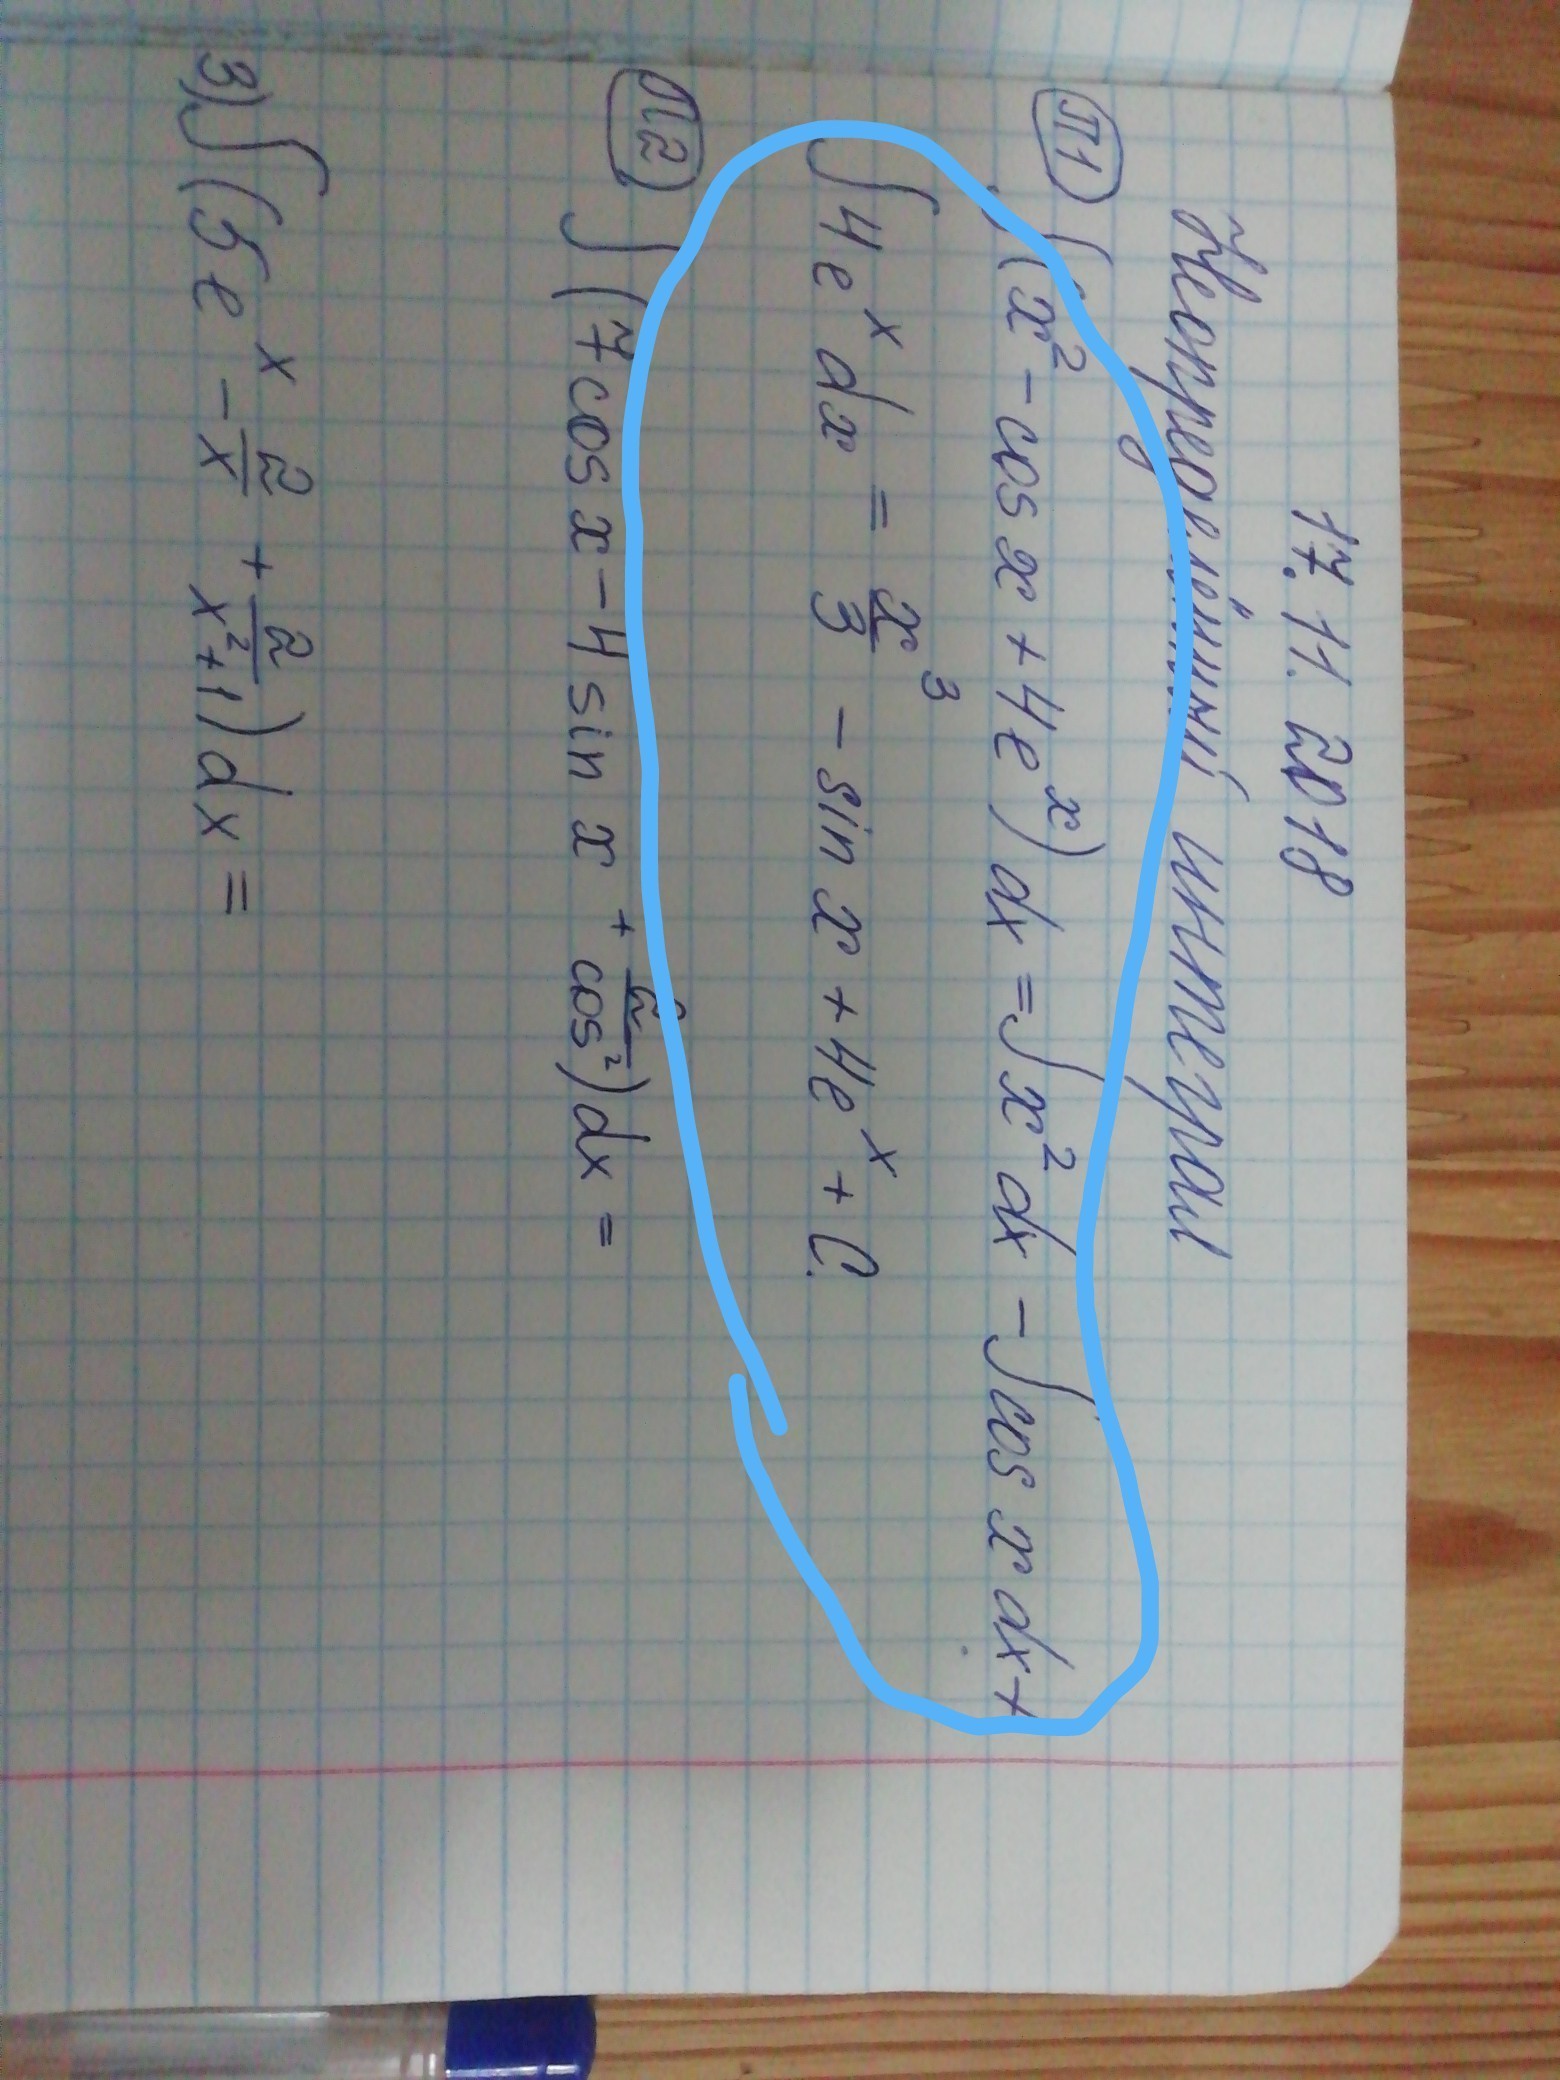 17.11.2018
Неопределённый интеграл
П1 ∫(x² - cos x + 4e^x) dx = ∫x² dx - ∫cos x dx +
∫4e^x dx = x³/3 - sin x + 4e^x + C.
П2 ∫(7cos x - 4 sin x + 2/cos²) dx =
3) ∫(5e^x - 2/x + 2/(x²+1)) dx =